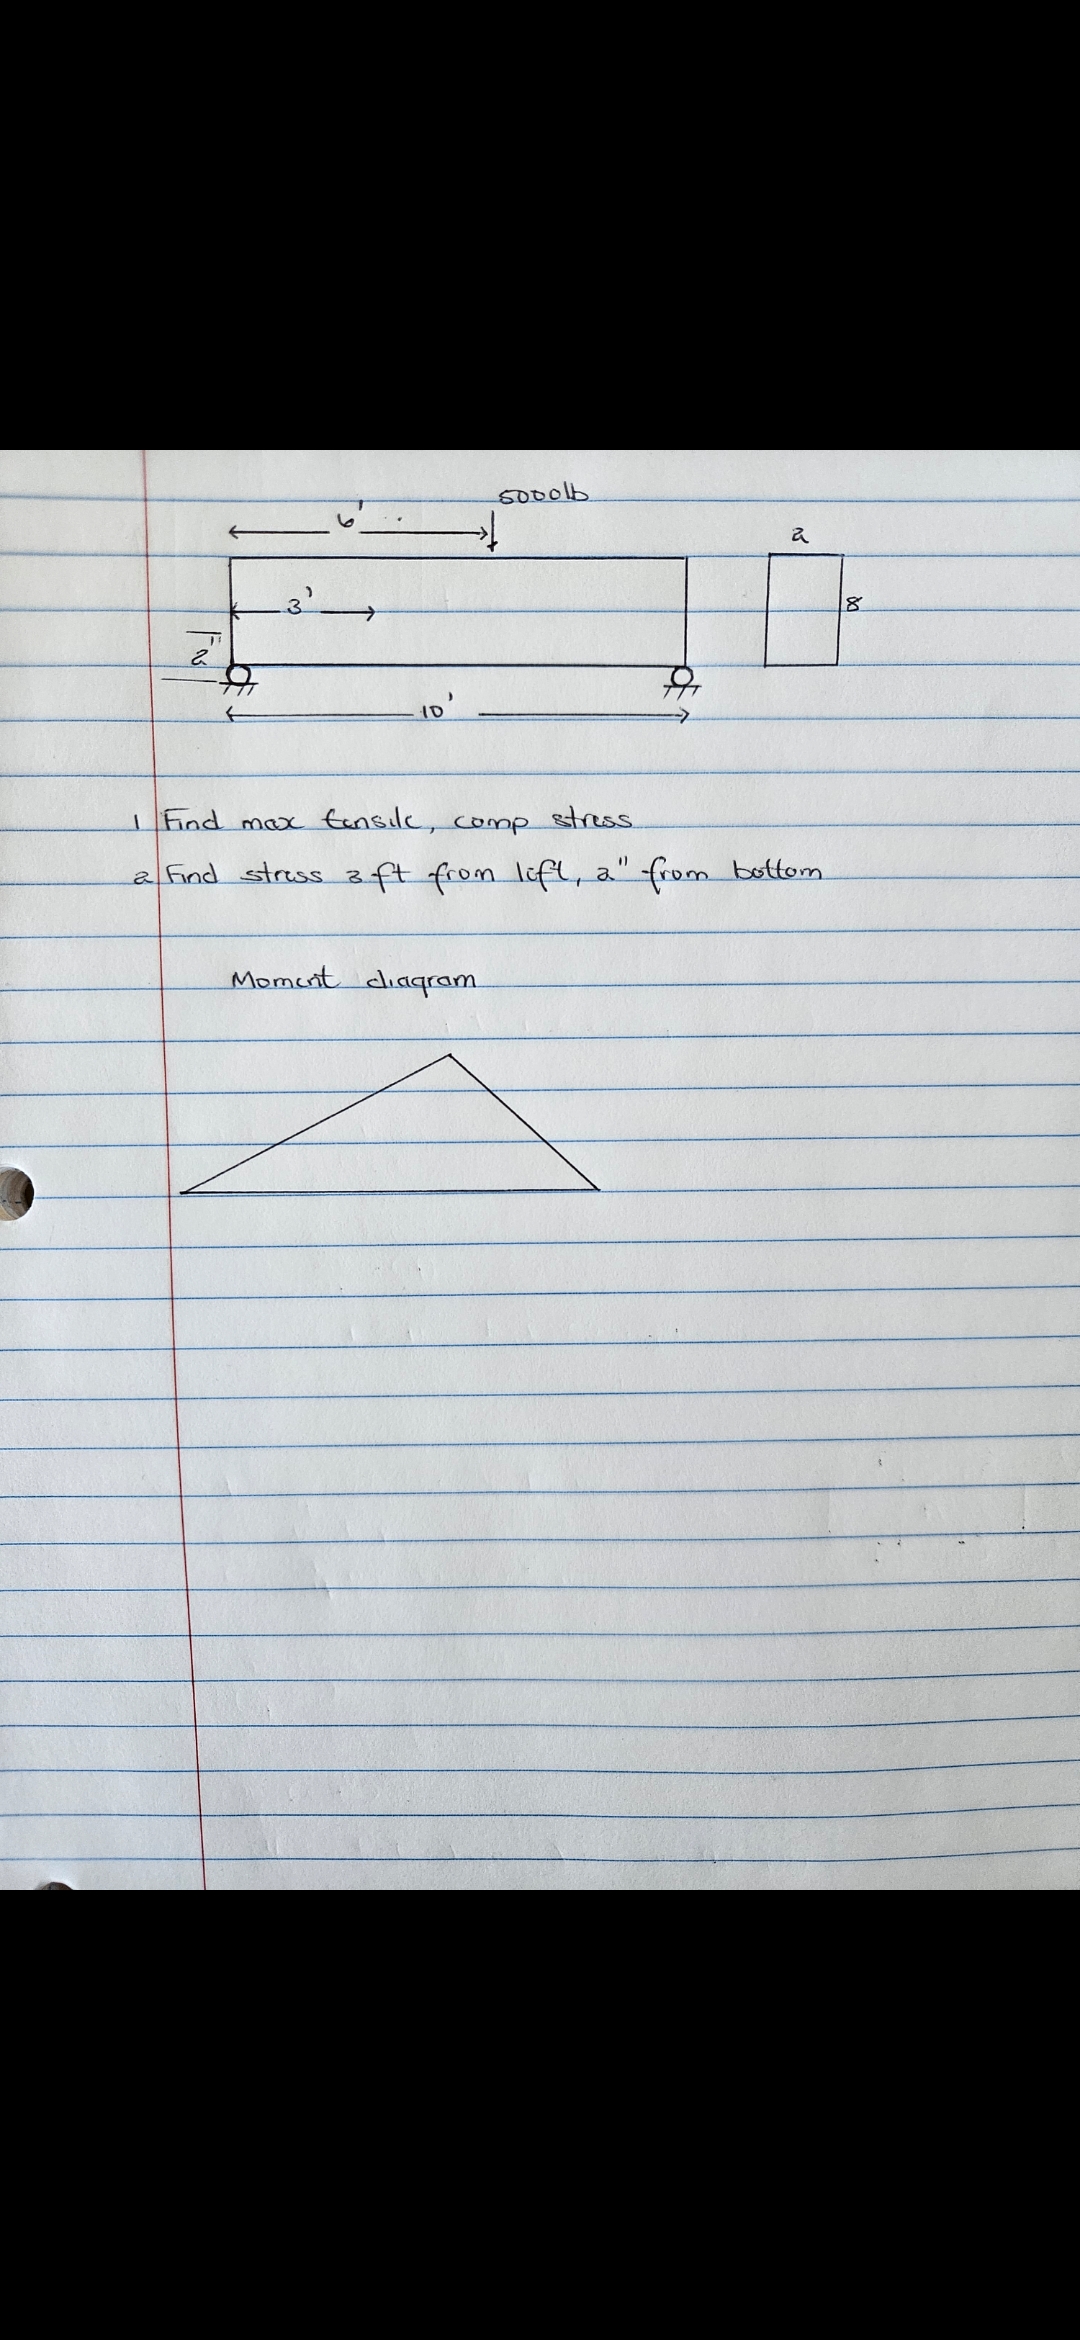 5000lb
6'
2
3'
8
2"
10'
1 Find max tensile, comp stress
2 Find stress 3 ft from left, 2" from bottom
Moment diagram